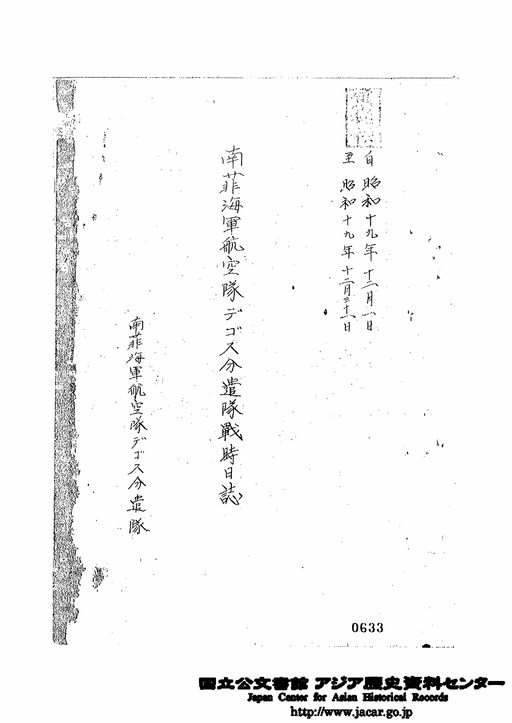 自 昭和十九年十二月一日
至 昭和十九年十二月三十一日
南菲海軍航空隊デゴス分遣隊戦時日誌
南菲海軍航空隊デゴス分遣隊
0633
国立公文書館 アジア歴史資料センター
Japan Center for Asian Historical Records
http://www.jacar.go.jp